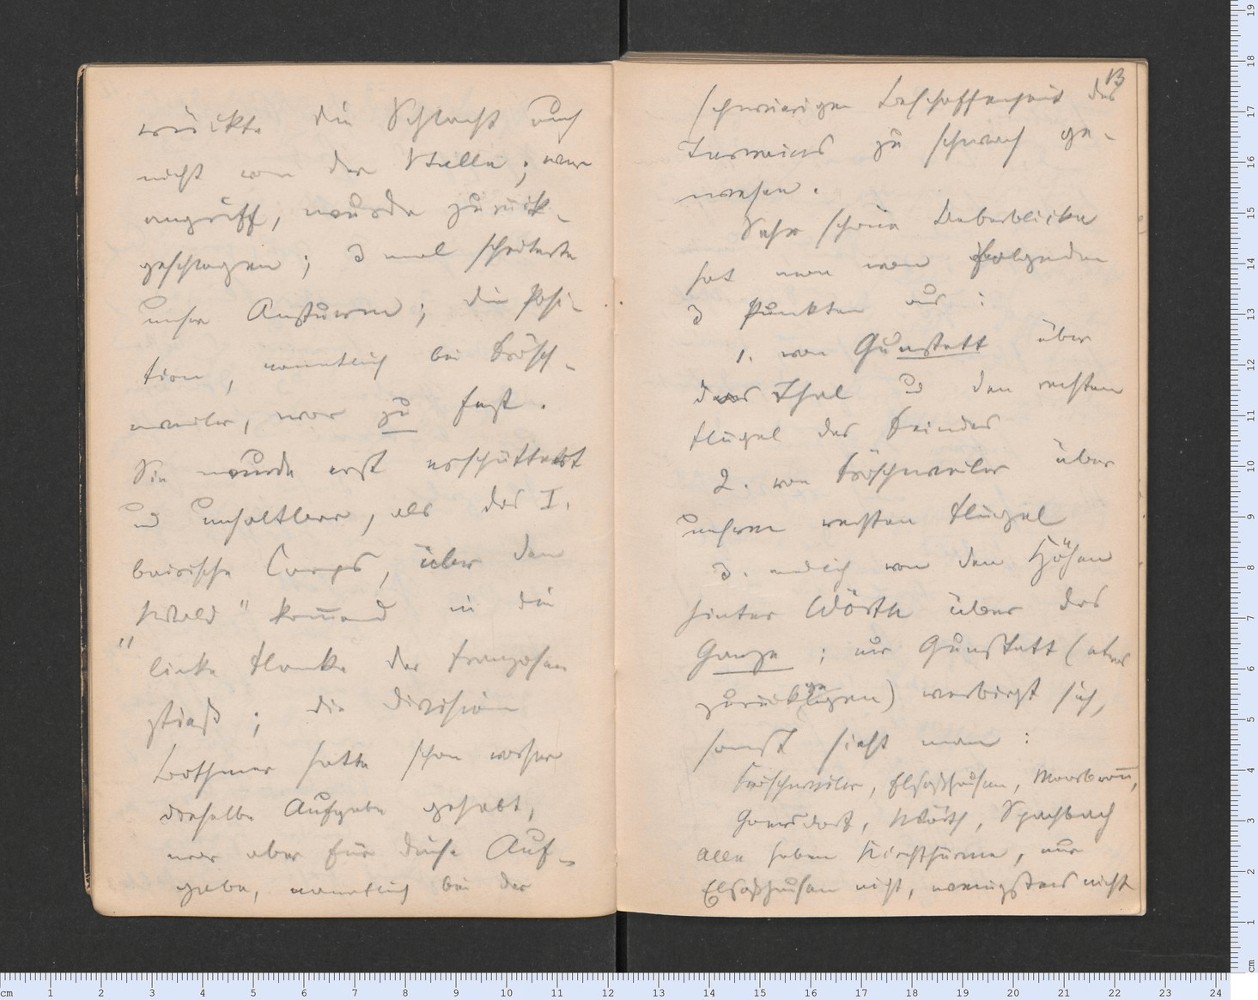 rückte die Schlacht auch
nicht von der Stelle; wer
angriff, wurde zurück-
geschlagen; 3 mal scheiterte
unser Ansturm; die Posi-
tion, namentlich bei Frösch-
weiler, war zu fest.
Sie wurde erst erschüttert
und unhaltbar, als das I.
bairische Corps, über den
„Wald“ kom̄end in die
linke Flanke der Franzosen
stieß; die Division
Bothmer hatte schon vorher
dieselbe Aufgabe gehabt,
war aber für diese Auf-
gabe, namentlich bei der
13
schwierigen Beschaffenheit des
Terrains zu schwach ge-
wesen.
Sehr schöne Ueberblicke
hat man von folgenden
3 Punkten aus:
1. von Gunstett über
das Thal und den rechten
Flügel des Feindes
2. von Fröschweiler über
unsren rechten Flügel
3. endlich von den Höhen
hinter Wörth über das
Ganze; nur Gunstett (etwas
zurückgelegen) verbirgt sich,
sonst sieht man:
Fröschweiler, Elsaßhausen, Morsbron̄,
Goersdorf, Wörth, Spachbach
Alle haben Kirchthürme, nur
Elsaßhausen nicht, wenigstens nicht